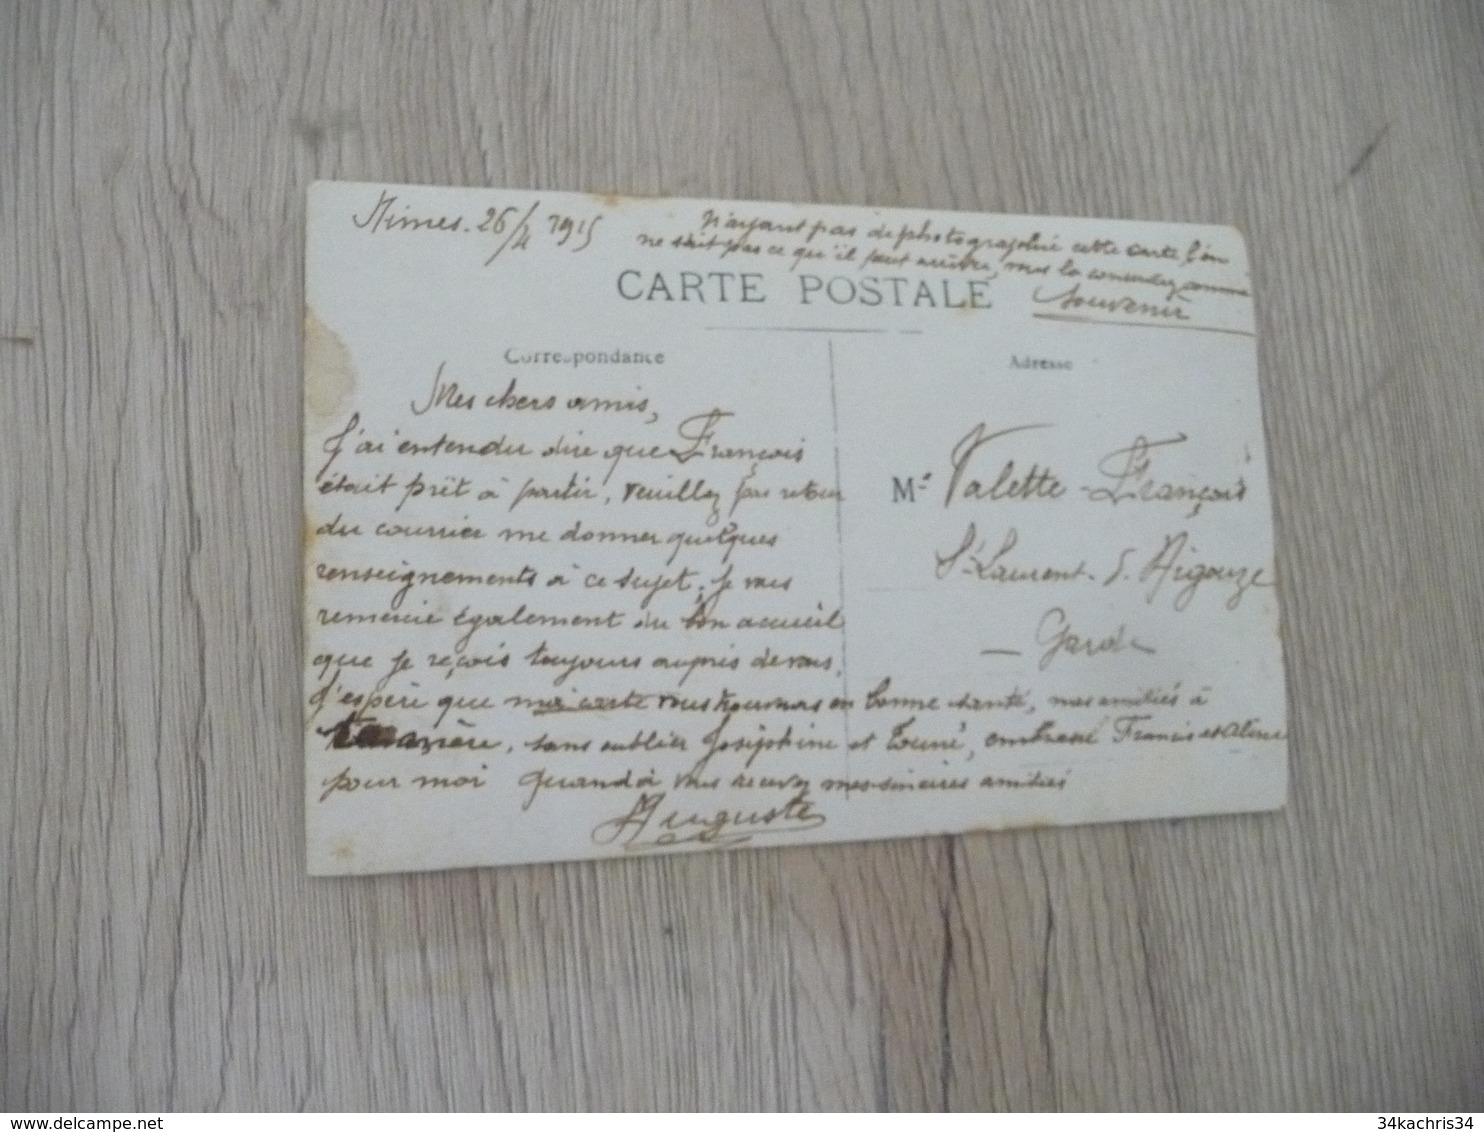 Nimes. 26/4 1915
N'ayant pas de photographié cette carte, l'on
ne sait pas ce qu'il peut arriver, vous la conserverez comme
souvenir
CARTE POSTALE
Correspondance
Adresse
Mes chers amis,
J'ai entendu dire que François
était prêt à partir, veuillez par retour
du courrier me donner quelques
renseignements à ce sujet, je vous
remercie également du bon accueil
que je reçois toujours auprès de vous,
J'espère que ma carte vous trouvera en bonne santé, mes amitiés à
mère, sans oublier Joséphine et Touné, embrassé Francis et Aline
pour moi quand à vous recevez mes sincères amitiés
Auguste
Mr Valette François
St Laurent. d. Aigouze
— Gard —
delcampe.net
34kachris34